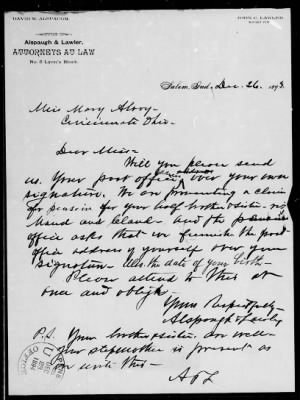 DAVID M. ALSPAUGH.
JOHN C. LAWLER.
NOTARY PUB.
OFFICE OF
Alspaugh & Lawler,
ATTORNEYS AT LAW
No. 5 Lyon's Block.
Salem, Ind., Dec. 26, 1893
Miss Mary Alroy-
Cincinnati Ohio-
Dear Miss-
Will you please send
us. Your post office address over your own
signature. We are prosecuting a claim
for pension for your half brother & sister-
and and the pension
office asks that we furnish the post
office address of yourself over your
signature- Also the date of your birth-
Please attend to this at
once and oblige-
Yours Respectfully-
Alspaugh & Lawler
P.S. Your brother & sister are well-
Your stepmother is present as
we write this-
A & L